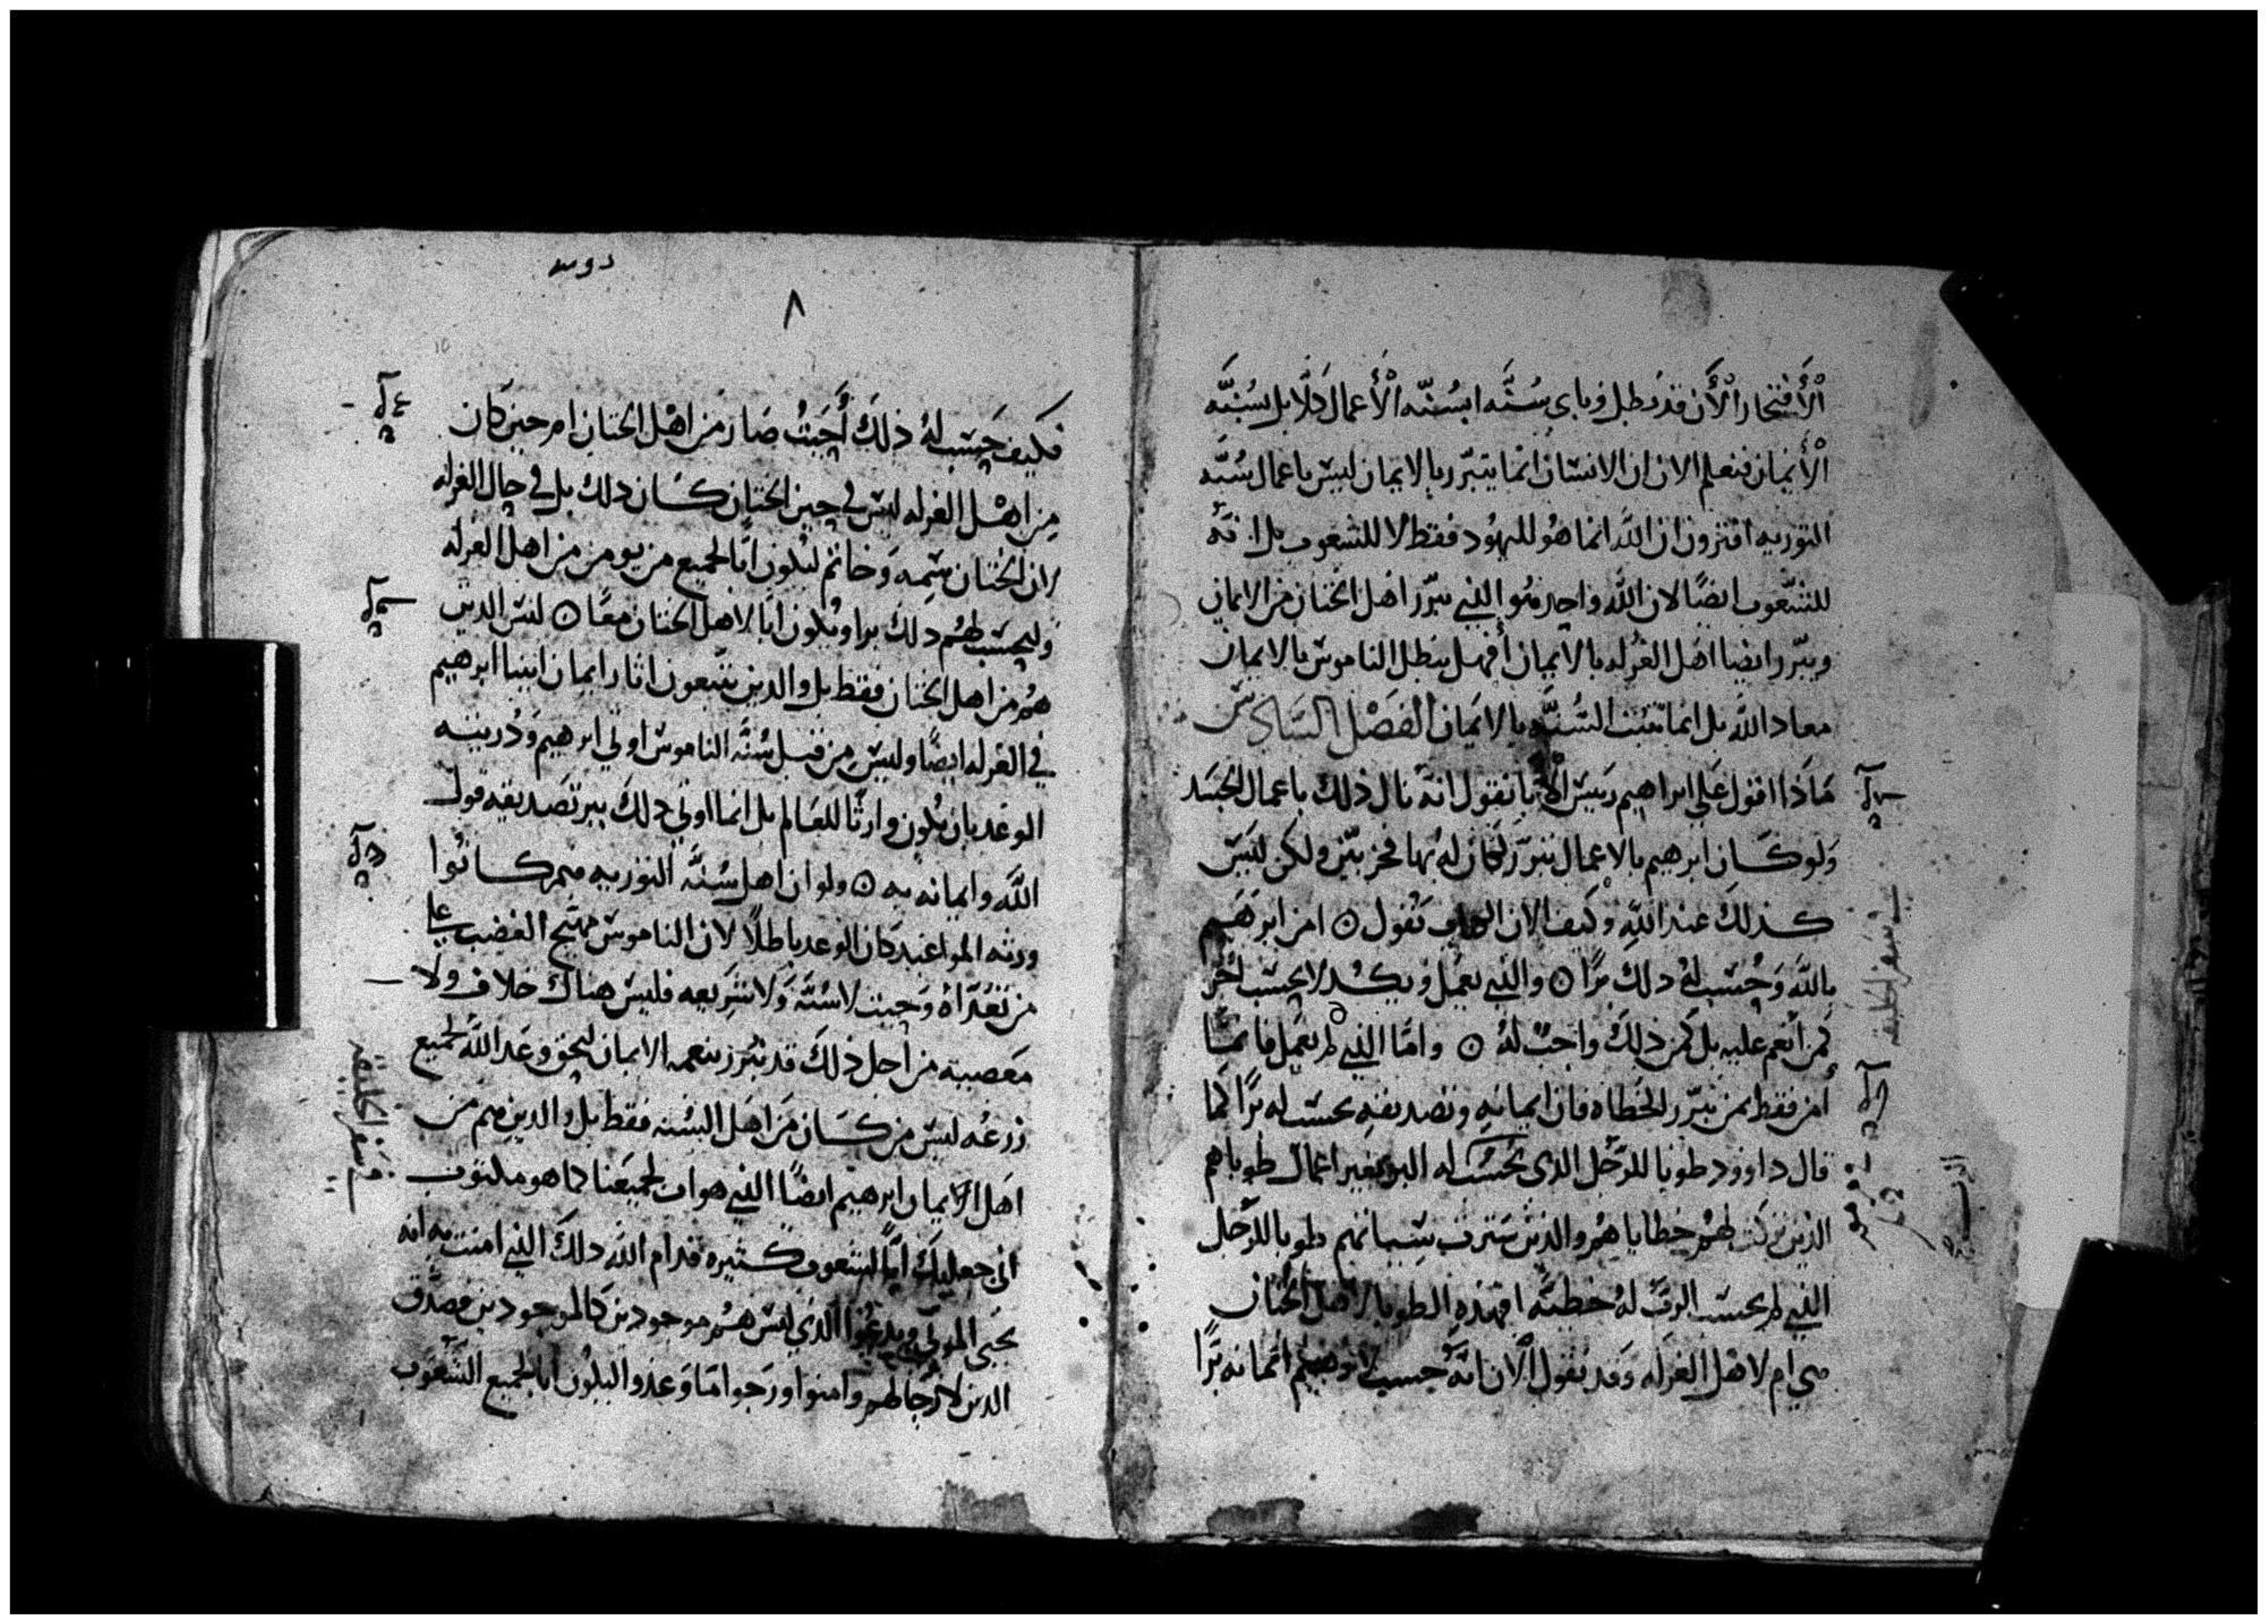 الأفتخار الأن قد بطل وباى سُنَّه ابسُنّه الأعمال كلَّا بل بسُنّه
الأيمان فنعلم الان ان الانسان انما يتبرر بالايمان ليس باعمال سُنّه
التوريه افترون ان اللّه انما هو لليهُود فقط لا للشعوب بل انّهُ
للشعوب ايضًا لان اللّه واحد هُو الذي يبرّر اهل الختان من الايمان
ويبرّر ايضا اهل الغرله بالايمان أفهل يبطل الناموس بالايمان
معاد اللّه بل انما نثبت السُّنَّه بالايمان الفَصْل السَّادِسّ
مَاذَا اقول عَلى ابراهيم رييس الابا نقول انه نال ذلك باعمال الجسَد
وَلو كَان ابرهيم بالاعمال تبرّر لكان لهُ بها فخر بيّن ولكن ليسَ
كذلك عند اللّه وكيف الان الكتاب يقول ۞ امن ابرهيم
باللّه وَحُسب لهُ دلك برًا ۞ والذي يعمل ويكُد لا يحسب اجر
كمن أنعم عليه بل كمن ذلِكَ واجبٌ لهُ ۞ وامّا الذي لم يعمل فانمَّا
أمن فقط بمن يبرّر الخطاه فان ايمانه وتصديقه يحسب له برًّا كما
قال داوود طوبا للرّجُل الدى يحسُب له البر بغير اعمال طوباهم
الذين تركت لهُم خطاياهُم والذين سترت سيياتهم طوبا للرّجُل
الذي لم يحسب الربُّ لهُ خطيَّه افهذه الطوبا لاهل الختان
هي ام لاهل الغرله وَقد نقول الان انَّهُ حسب لابرهيم ايمانه برًّا
٨
فكيف حَسَب لهُ ذلك أحيثُ صَار مَن اهْل الختان ام حين كان
مِن اهْل الغرله ليس في حين الختان كان دلك بل في حال الغرله
لان الختان سِمه وَخاتم ليكون ابًا لجميع من يومن من اهل الغرله
وليحسَب لهُم دلك برا ويكون ابا لاهل الختان معًا ۞ ليسَ الدين
هُم من اهل الختان فقط بل والدين يتّبعون اثار ايمان ابينا ابرهيم
في الغرله ايضًا وليس مِن قبل سُنَّه الناموس اوتي ابرهيم وَذُريته
الوعد بان يكُون وارثًا للعَالم بل انما اوتي دلك ببر تصديقه قول
اللّه وايمانه به ۞ ولو ان اهل سُنَّه التوريه هم كانُوا
ورثه المواعيد كان الوعد باطلًا لان الناموس مهيّج الغضب على
من تعدَّاهُ وَحيث لا سُنَّه وَلا شريعه فليس هناك خلاف ولا
معَصيه من اجل ذلكَ قد تبرر بنعمه الايمان ليحق وعَد اللّه لجميع
زرعُه ليسَ من كَان مَن اهَل السُنه فقط بل والدين هم من
اهَل الايمان ابرهيم ايضًا الذي هو اب لجميعنا كما هو مكتوب
اني جعليك ابًا لشعوب كثيره قدام اللّه دلكَ الذي امنت به انه
يحيى الموتي ويدعُوا الذي ليس هُم موجودين كالموجودين فصدّق
الدين لا رجا لهم وامنوا ورَجوا ما وَعدوا ليكُون ابًا لجميع الشّعُوب
من سفر الخليقه